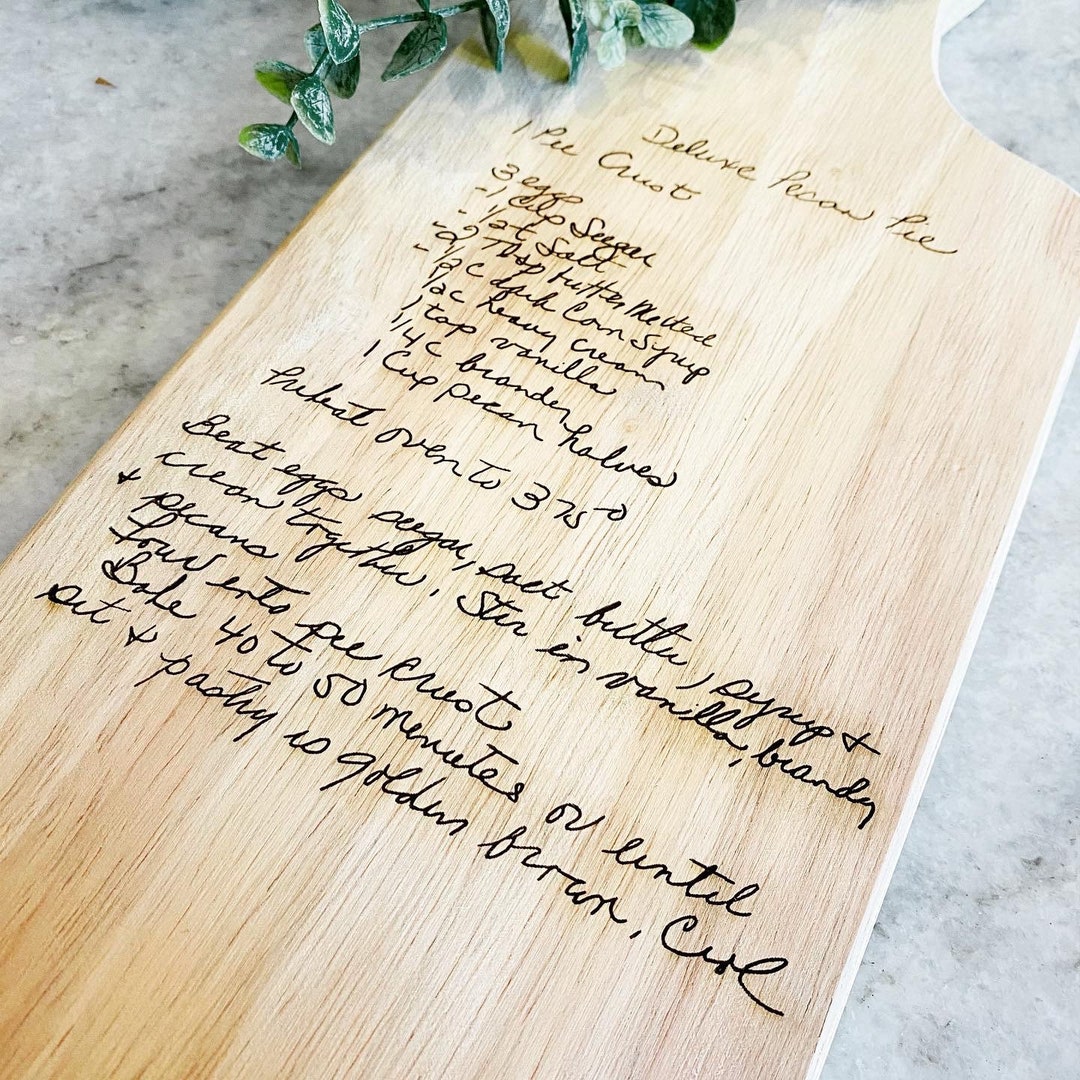 Deluxe Pecan Pie
1 Pie Crust
3 eggs
- 1 Cup Sugar
- 1/2t Salt
- 2 Tbsp butter Melted
1/2 C dark Corn Syrup
1/2c heavy cream
1 tsp vanilla
1/4 C brandy
1 Cup pecan halves
Preheat oven to 375°
Beat eggs sugar, salt butter, syrup +
cream together. Stir in vanilla, brandy
+ pecans
Pour into pie crust
Bake 40 to 50 minutes or until
set + pastry is golden brown, Cool